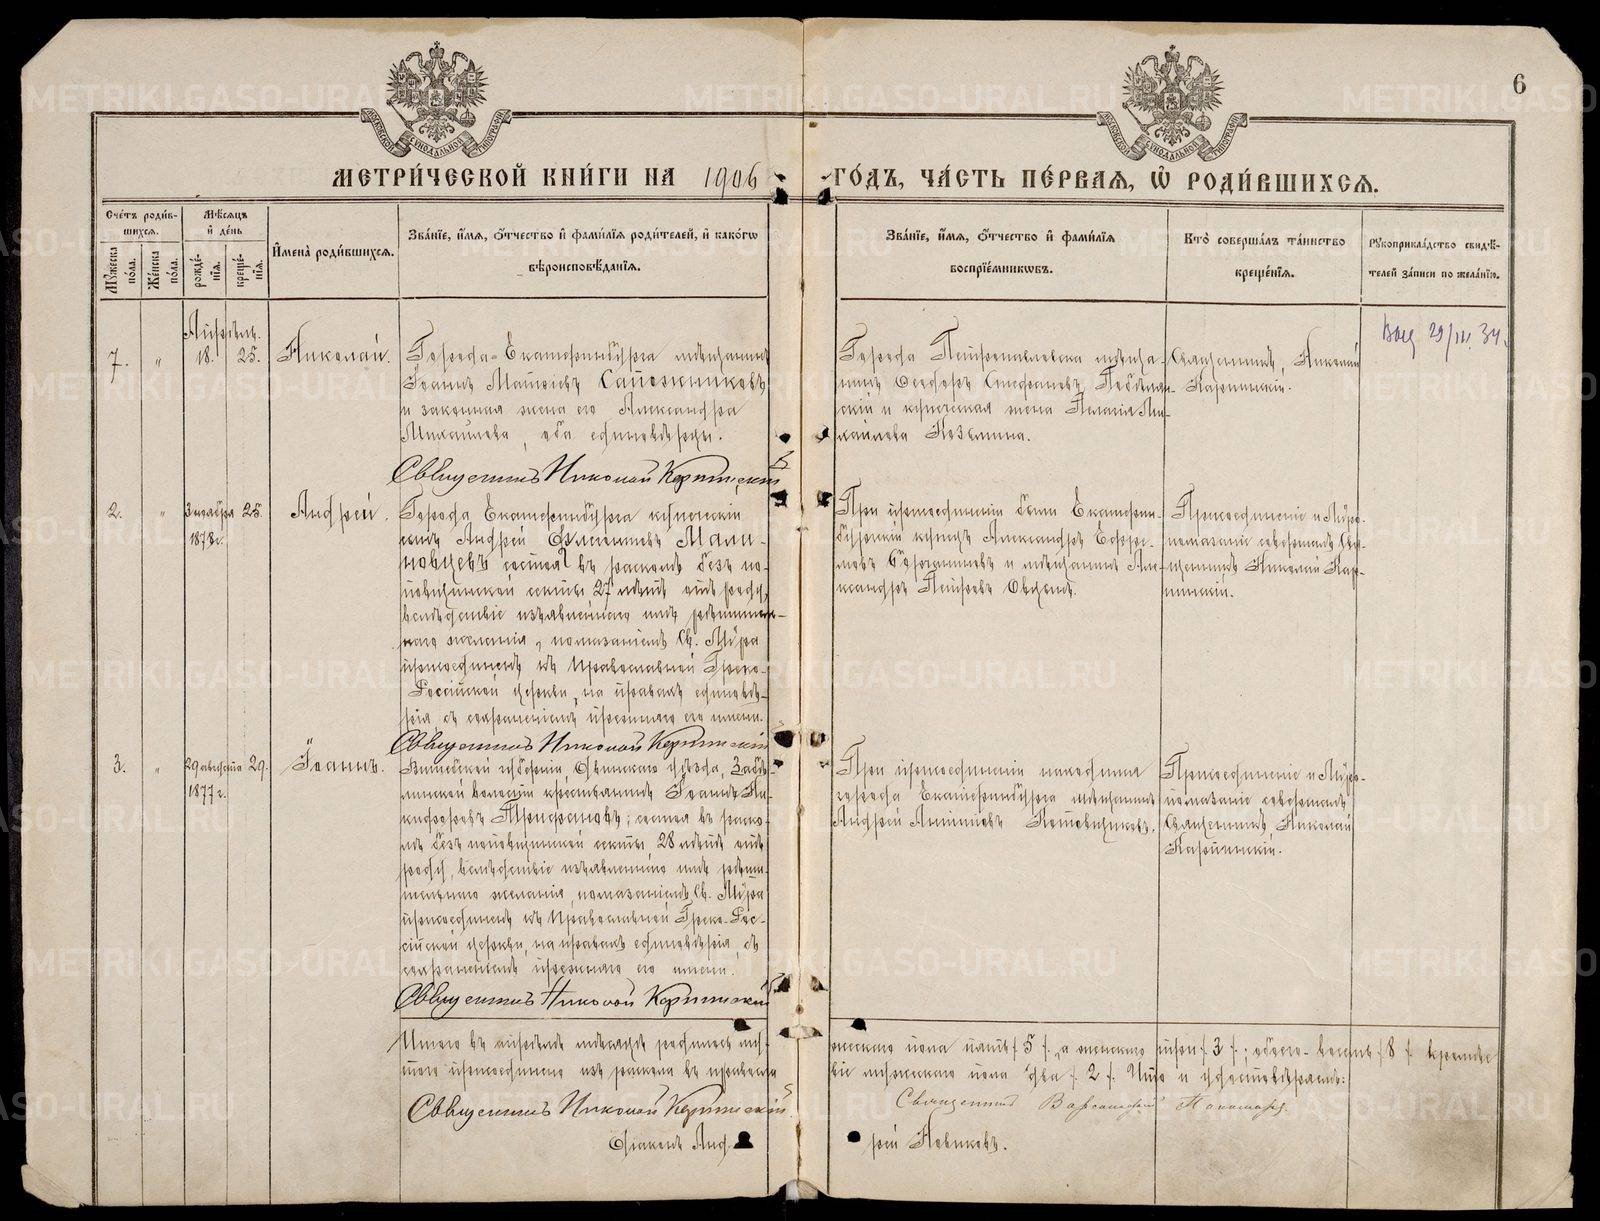 МОСКОВСКОЙ СѴНОДАЛЬНОЙ ТИПОГРАФІИ
МОСКОВСКОЙ СѴНОДАЛЬНОЙ ТИПОГРАФІИ
6
МЕТРИ́ЧЕСКОЙ КНИ́ГИ НА 1906 ГО́ДЪ, ЧА́СТЬ ПЕ́РВАЯ, Ѡ РОДИ́ВШИХСЯ.
Сче́тъ роди́в-
шихся.
Мꙋ́жеска по́ла.
Же́нска по́ла.
Мѣ́сяцъ и де́нь
рожде́-нїя.
креще́-нїя.
И҆мена̀ роди́вшихся.
Зва́нїе, и҆́мя, ѻ҆́тчество и҆ фами́лїя роди́телей, и҆ како́гѡ
вѣроисповѣ́данїя.
Зва́нїе, и҆́мя, ѻ҆́тчество и҆ фами́лїя
воспрїе́мникѡвъ.
Кто̀ соверша́лъ та́инство
креще́нїя.
Рꙋкоприкла́дство свидѣ́-
телей за́писи по жела́нїю.
Апрѣль.
7. " 18. 25. Николай.
Города Екатеринбурга мѣщанинъ
Іоаннъ Сапожниковъ
и законная жена его Александра
Михайлова, оба единовѣрцы.
Священникъ Николай Карпинскій
Города Петропавловска мѣща-
нинъ Ѳеодоръ Стефановъ
скій и купеческая жена Пелагія Ми-
хайлова
Священникъ Николай
Карпинскій.
29/IV. 34.
2. " 3 ноября 1878 г. 25. Андрей.
Города Екатеринбурга купеческій
сынъ Андрей Мали-
новцевъ состоя въ расколѣ безъ по-
повщинской секты 27 лѣтъ отъ роду,
вслѣдствіе изъявленнаго имъ рѣшитель-
наго желанія, помазаніемъ Св. Мѵра
присоединенъ къ Православной Греко-
Россійской церкви, на правахъ единовѣ-
рія, съ сохраненіемъ прежняго его имени.
Священникъ Николай Карпинскій
При присоединеніи были Екатерин-
бургскій купецъ Александръ Ефре-
мовъ и мѣщанинъ Але-
ксандръ Петровъ
Присоединеніе и Мѵро-
помазаніе совершалъ Свя-
щенникъ Николай Кар-
пинскій.
3. " 29 августа 1877 г. 29. Іоаннъ.
Витебской губерніи, Двинскаго уѣзда,
волости крестьянинъ Іоаннъ Ни-
кифоровъ состоя въ раско-
лѣ безъ поповщинской секты, 28 лѣтъ отъ
роду, вслѣдствіе изъявленнаго имъ рѣши-
тельнаго желанія, помазаніемъ Св. Мѵра
присоединенъ къ Православной Греко-Рос-
сійской церкви, на правахъ единовѣрія, съ
сохраненіемъ прежняго его имени.
Священникъ Николай Карпинскій
При присоединеніи находился
города Екатеринбурга мѣщанинъ
Андрей
Присоединеніе и Мѵро-
помазаніе совершалъ
Священникъ Николай
Карпинскій.
Итого въ апрѣлѣ мѣсяцѣ родилось му-
жескаго пола пять /. 5 /. а женскаго три /. 3 /.; обоего - восемь /. 8 /. кромѣ
того присоединено изъ раскола въ правосла-
віе мужескаго пола два /. 2 /.
Священникъ Николай Карпинскій.
Священникъ Пономарев.
Діаконъ Анд-
рей Новиковъ.
METRIKI.GASO-URAL.RU